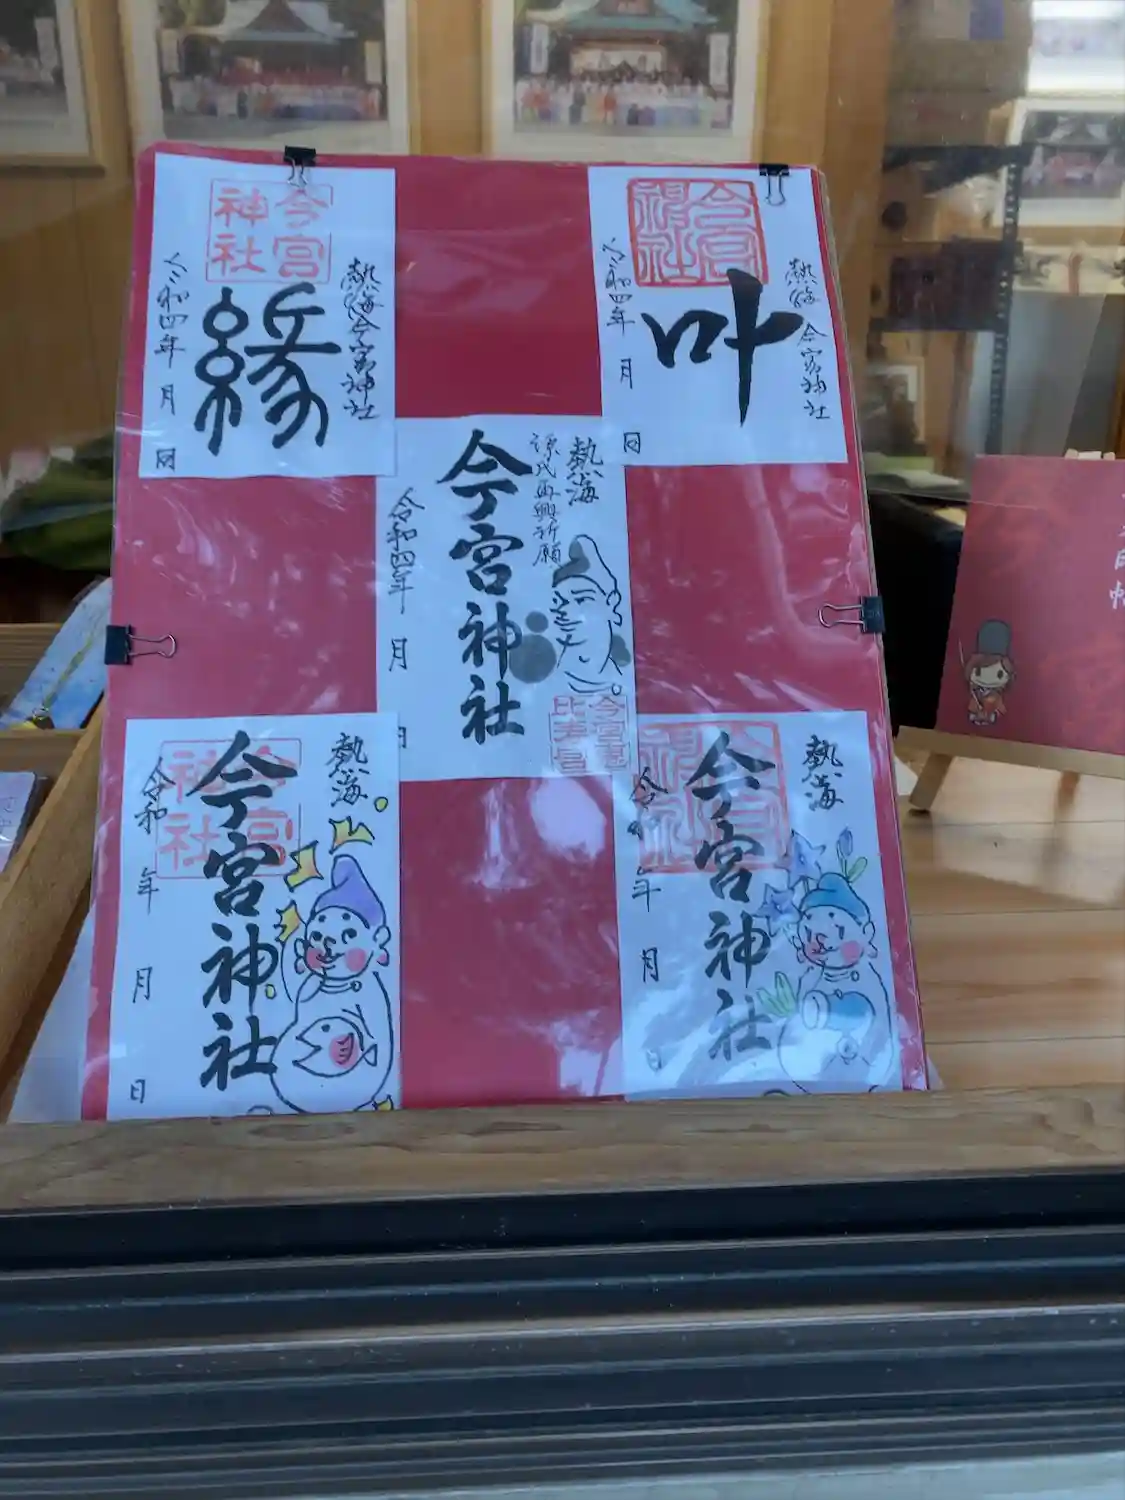 今宮
神社
熱海今宮神社
縁
令和四年 月 日
今宮
神社
熱海 今宮神社
叶
令和四年 月 日
熱海
源氏再興祈願
今宮神社
令和四年 月 日
熱海
今宮神社
今宮
神社
令和 年 月 日
熱海
今宮神社
今宮
神社
令和 年 月 日